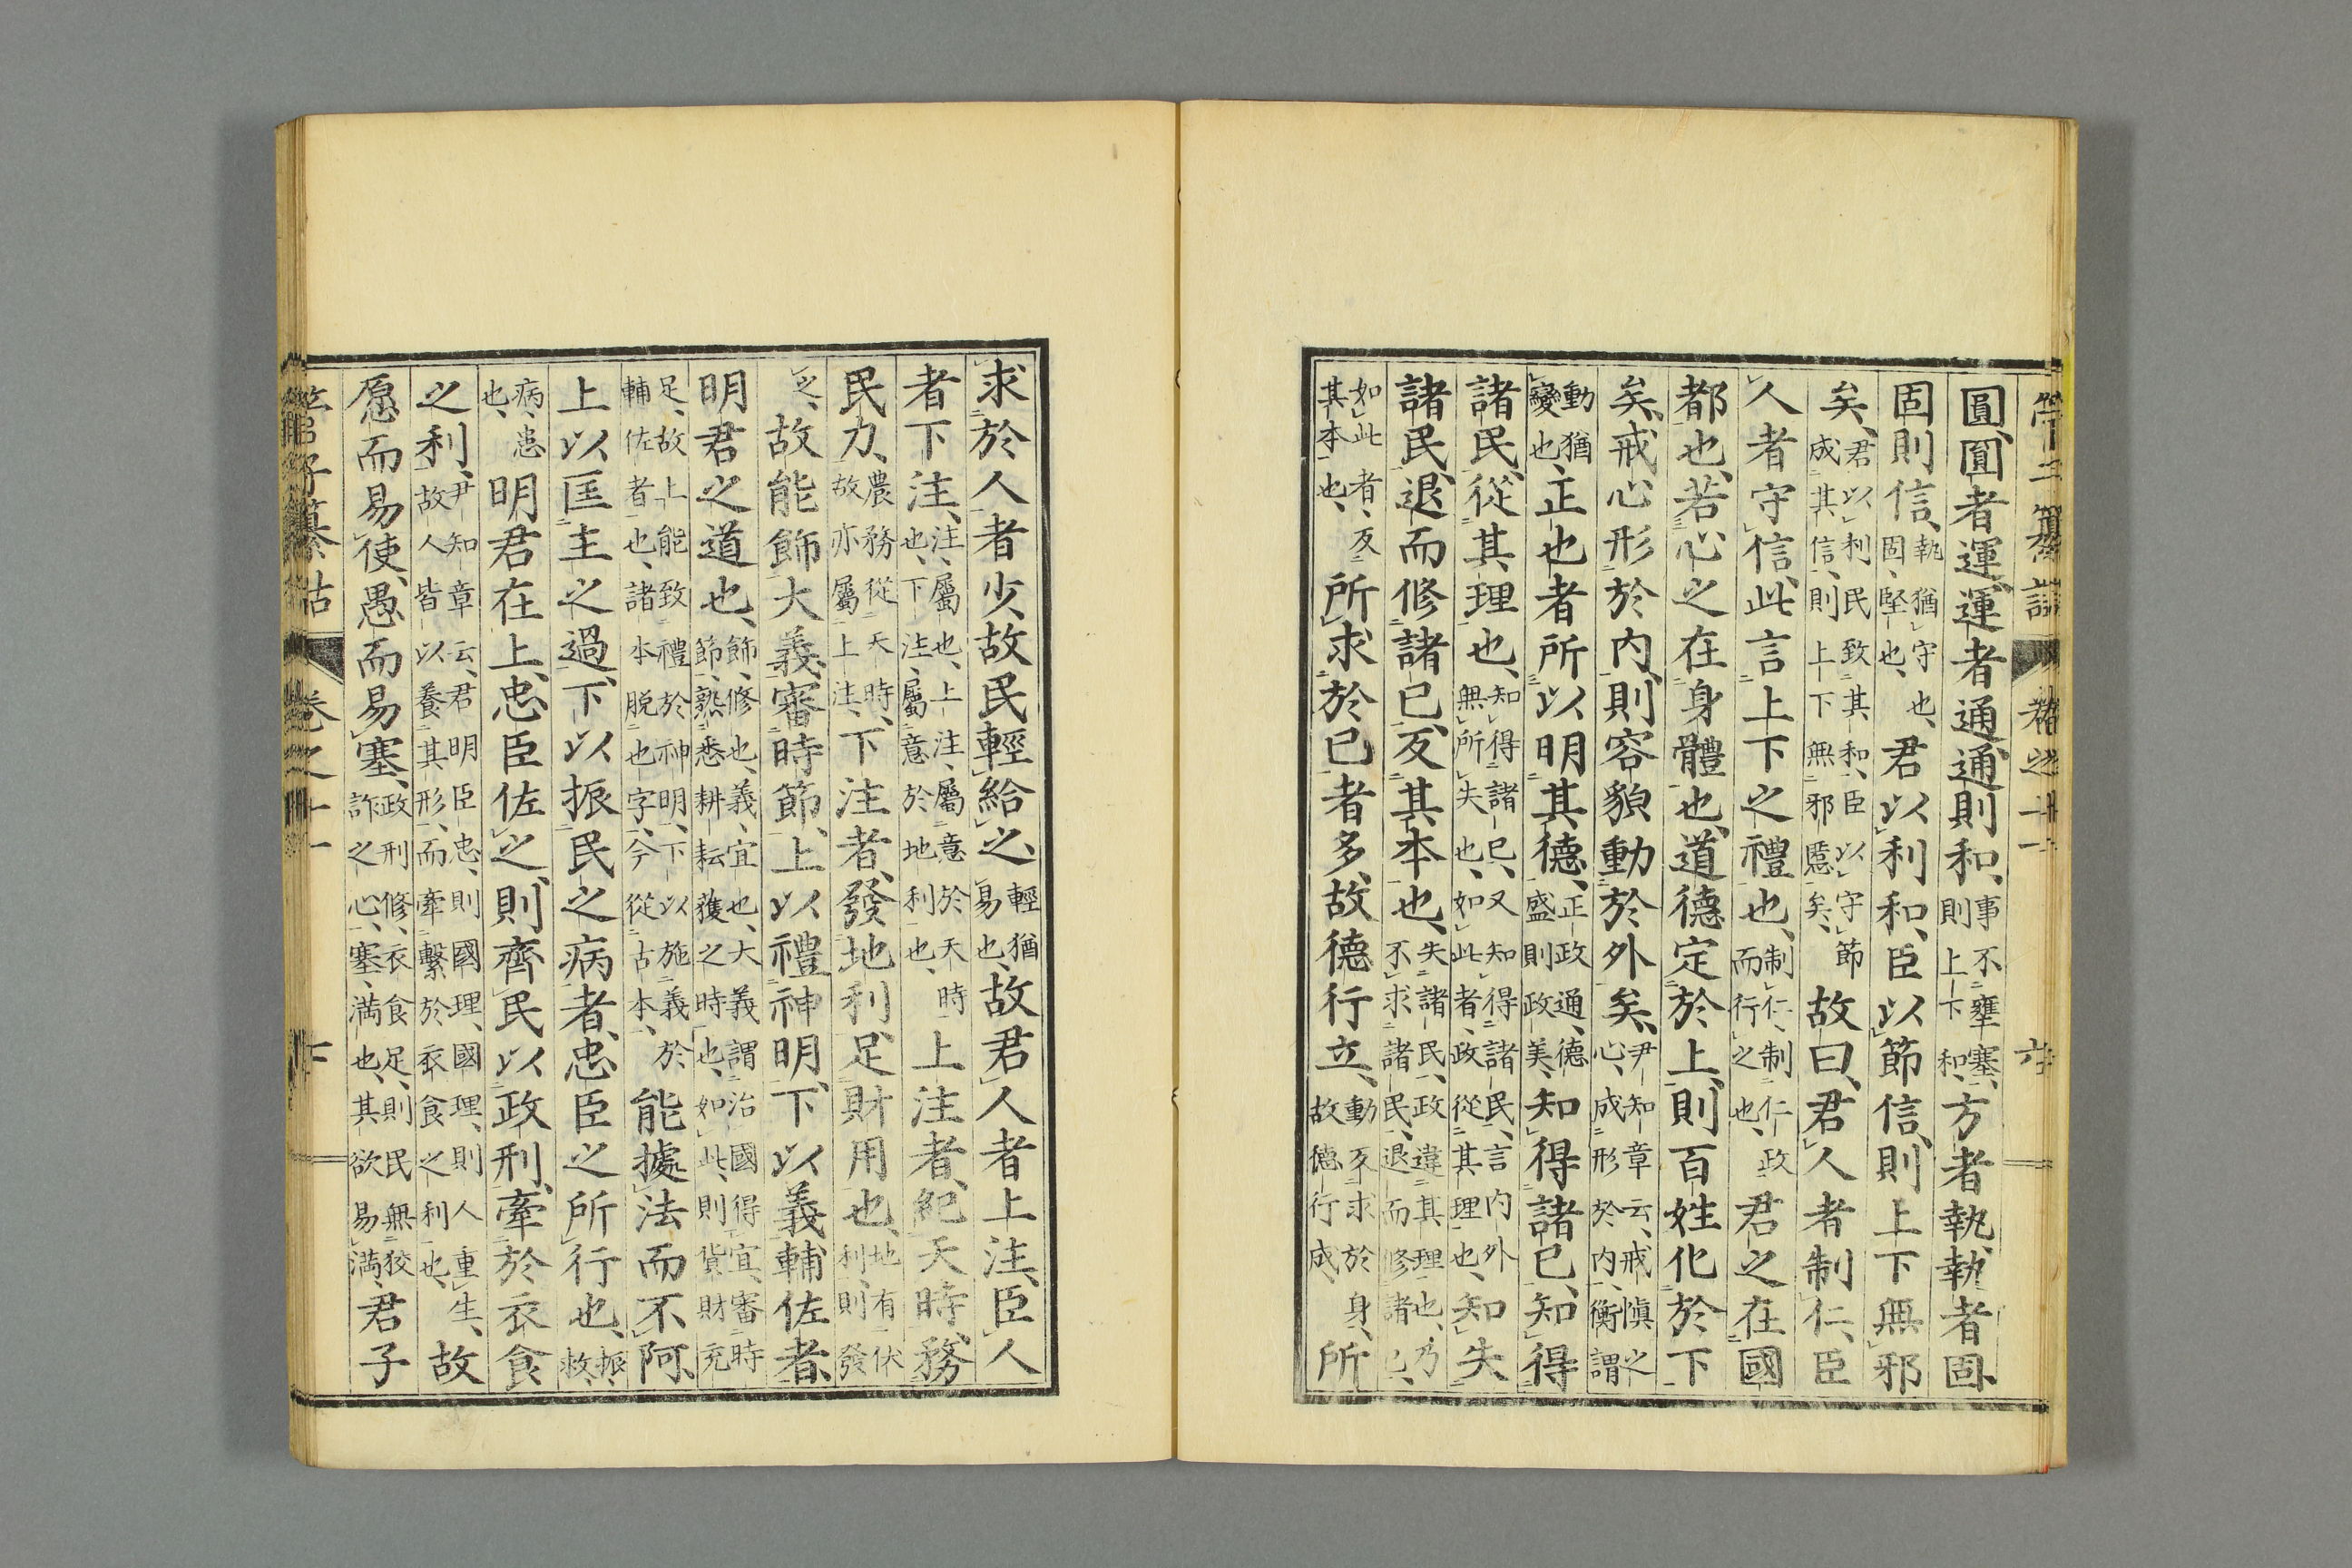 管子纂詁 卷之十一 六
圓、圓者運、運者通、通則和、事不壅塞、則上下和、方者執、執者固、
固則信、執猶守也、固、堅也、君以利和、臣以節信、則上下無邪
矣、君以利民致其和、臣以守節成其信、則上下無邪慝矣、故曰、君人者制仁、臣
人者守信、此言上下之禮也、制仁、制仁政而行之也、君之在國
都也、若心之在身體也、道德定於上、則百姓化於下
矣、戒心形於內、則容貌動於外矣、尹知章云、戒愼之心、成形於内、衡謂
動猶變也、正也者所以明其德、正政通、德盛則政美、知得諸己、知得
諸民、從其理也、知得諸己、又知得諸民、言内外無所失也、如此者、政從其理也、知失
諸民、退而修諸己、反其本也、失諸民、政違其理也、乃不求諸民、退而修諸己、
如此者、反其本也、所求於己者多、故德行立、動不求於身、故德行成、所
求於人者少、故民輕給之、輕猶易也、故君人者上注、臣人
者下注、注、屬也、上注、屬意於天時也、下注、屬意於地利也、上注者、紀天時、務
民力、農務從天時、故亦屬上注、下注者、發地利、足財用也、地有伏利、則發
之、故能飾大義、審時節、上以禮神明、下以義輔佐者、
明君之道也、飾、修也、義、宜也、大義謂治國得宜、審時節、熟悉耕耘獲之時也、如此、則貨財充
足、故上能致禮於神明、下以施義於輔佐者也、諸本脫也字、今從古本、能據法而不阿、
上以匡主之過、下以振民之病者、忠臣之所行也、振、救、
病、患也、明君在上、忠臣佐之、則齊民以政刑、牽於衣食
之利、尹知章云、君明臣忠、則國理、國理、則人重生、故人皆以養其形、而牽繫於衣食之利也、故
愿而易使、愚而易塞、政刑修、衣食足、則民無狡詐之心、塞、滿也、其欲易滿、君子
管子纂詁 卷之十一